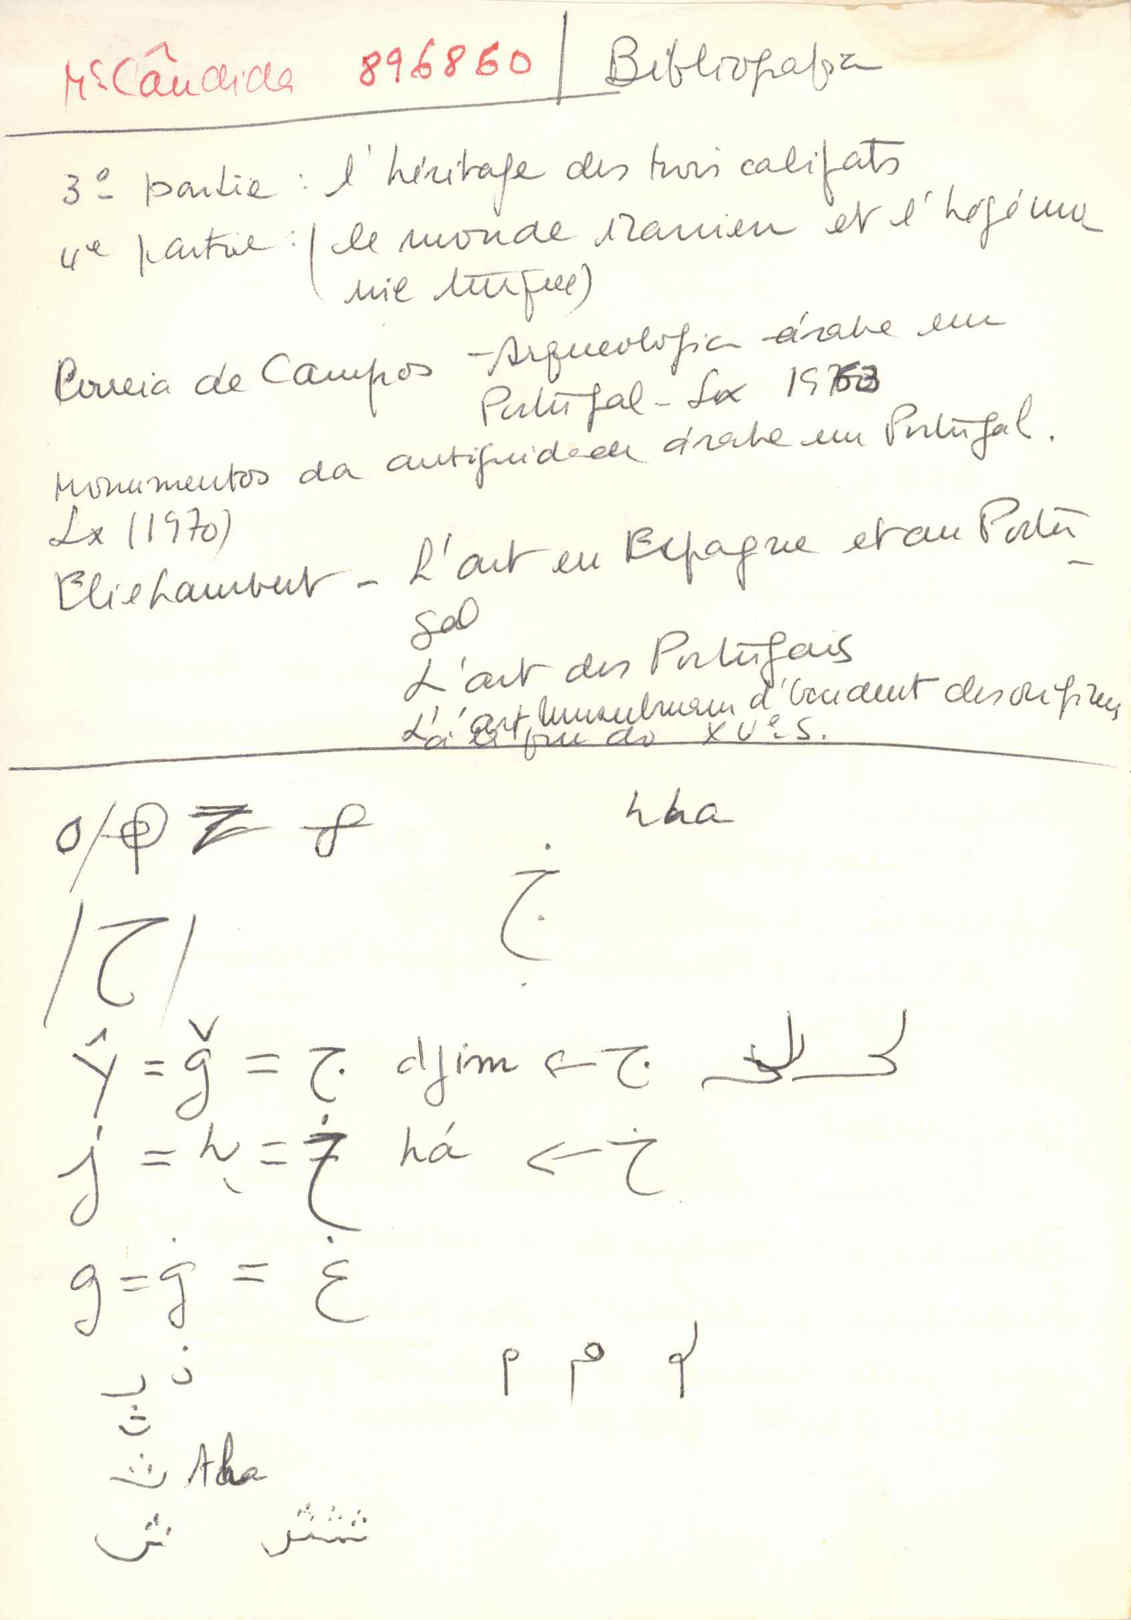 Mª Cândida 896860 | Bibliografia
3ª partie : l'héritage des trois califats
4e partie : (le monde iranien et l'hégémo
nie turque)
Correia de Campos - Arqueologia árabe em
Portugal - Lx 1963
Monumentos da antiguidade árabe em Portugal.
Lx (1970)
Elie Lambert - L'art en Espagne et au Portu-
gal
L'art des Portugais
L'art musulman d'Occident des origines
à la fin do XVe s.
hha
/ح/
ŷ = ǧ = ج djim ← ج
j = ḫ = خ há ← خ
g = ġ = غ
م م
ش